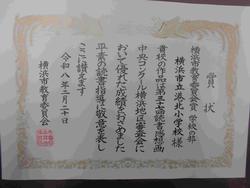 賞状
横浜市教育委員会賞 学校の部
横浜市立港北小学校様
貴校の作品は第三十七回読書感想画
中央コンクール横浜地区審査会に
おいて優れた成績をおさめました
平素の読書指導に敬意を表し
ここに讃えます
令和八年二月二十日
横浜市教育委員会